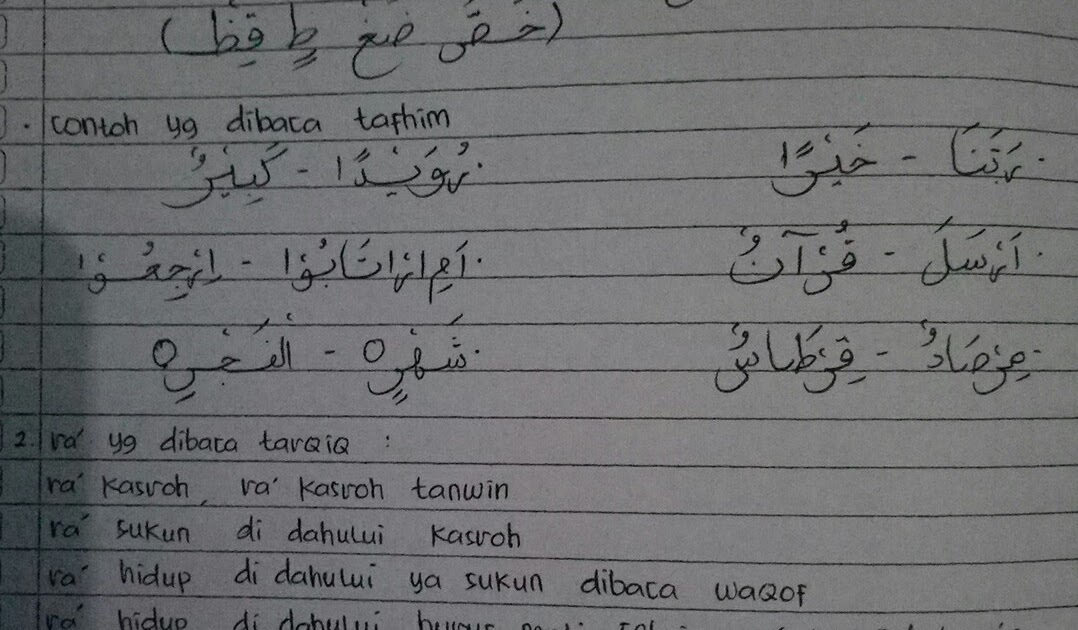 (خُصَّ ضَغْطٍ قِظْ)
. contoh yg dibaca tafhim
. رَبَّنَا - خَيْرًا . رُوَيْدًا - كَبِيْرٌ
. اَرْسَلَ - قُرْآنٌ . اَمِ ارْتَابُوْا - اِرْجِعُوْا
. مِرْصَادٌ - قِرْطَاسٌ . شَهْرٍ ○ - الْفَجْرِ ○
2. ra' yg dibaca tarqiq :
ra' kasroh, ra' kasroh tanwin
ra' sukun di dahului kasroh
ra' hidup di dahului ya sukun dibaca waqof
ra' hidup di dahului